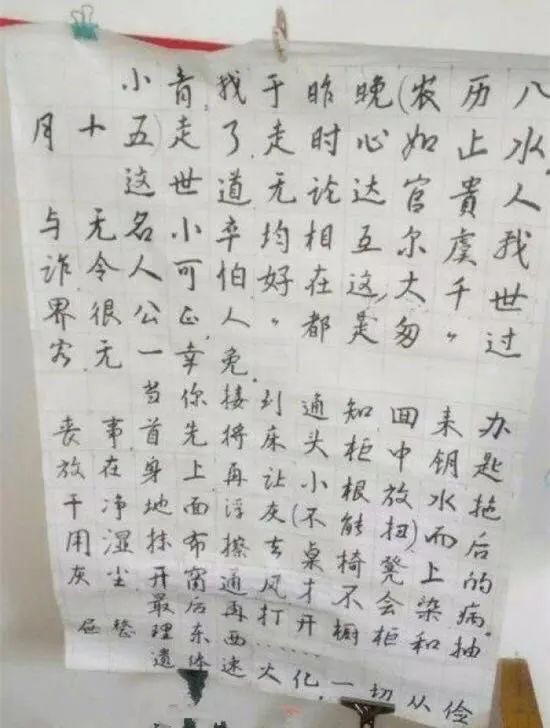 小青,我于昨晚(农历八
月十五)走了.走时心如止水,
这世道无论达官贵人
与无名小卒均相互尔虞我
诈.令人可怕.好在这大千世
界很公正."人都是匆"过
客,无一幸免.
当你接到通知回来办
丧事首先将床头柜中钥匙
放在身上再让小根放水拖
干净地面浮灰(不能扭)而后
用湿抹布擦去桌椅凳上的
灰尘.开窗通风才不会染病.
最后再打开橱柜和抽
屉整理东西……
遗体速火化,一切从俭